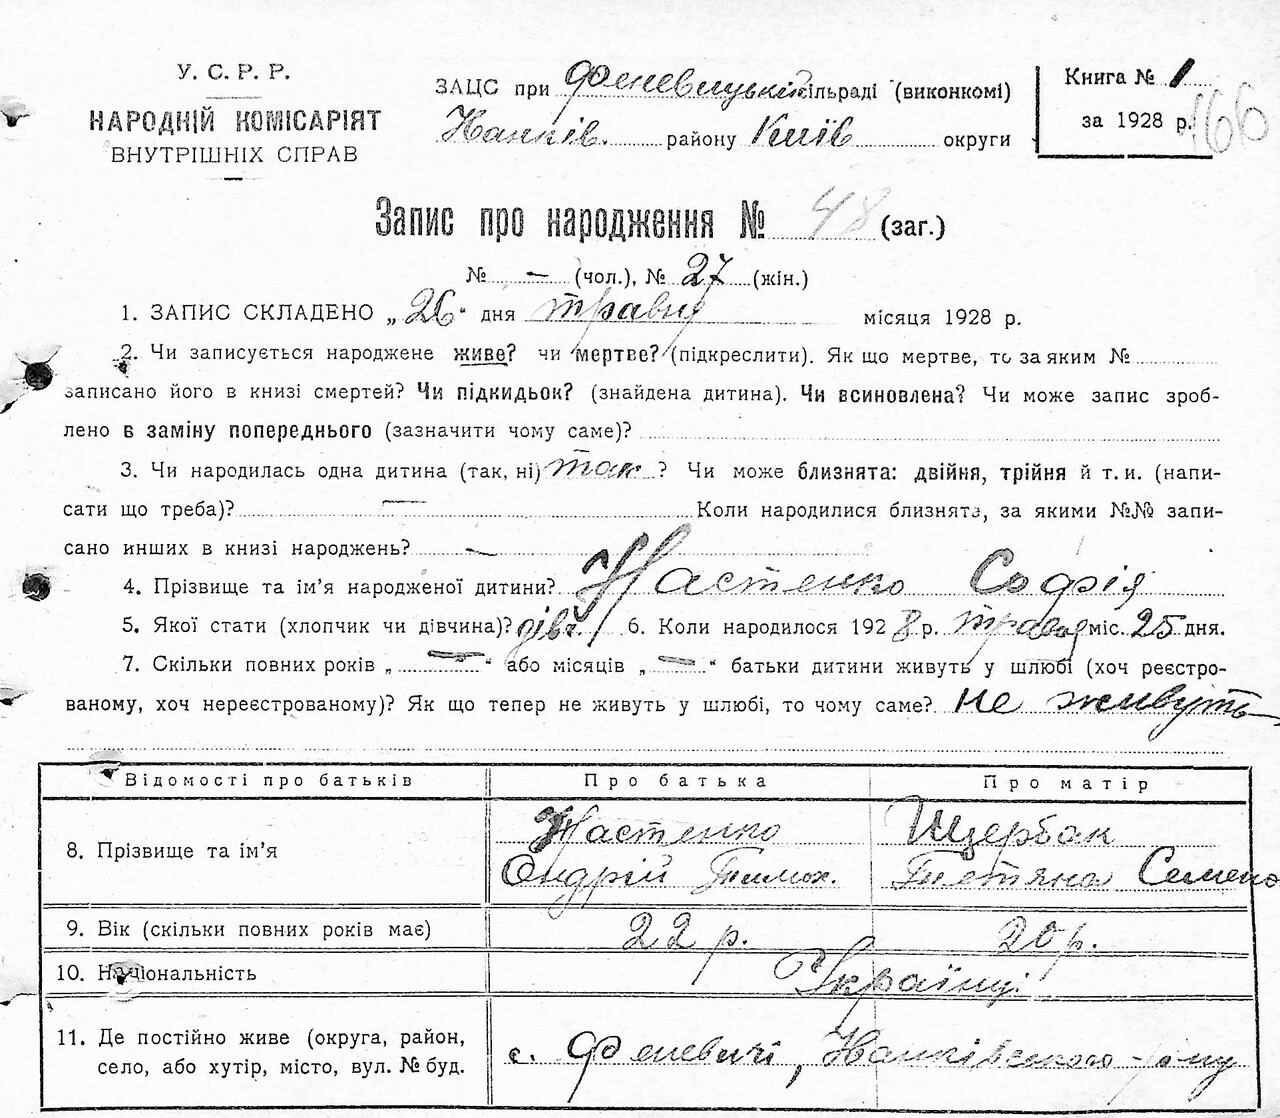 У. С. Р. Р.
НАРОДНІЙ КОМІСАРІЯТ
ВНУТРІШНІХ СПРАВ
ЗАЦС при Феневицькій сільраді (виконкомі)
Нанків. району Київ округи
Книга № 1
за 1928 р.
166
Запис про народження № 48 (заг.)
№ — (чол.), № 27 (жін.)
1. ЗАПИС СКЛАДЕНО „26“ дня травня місяця 1928 р.
2. Чи записується народжене живе? чи мертве? (підкреслити). Як що мертве, то за яким №
записано його в книзі смертей? Чи підкидьок? (знайдена дитина). Чи всиновлена? Чи може запис зроб-
лено в заміну попереднього (зазначити чому саме)?
3. Чи народилась одна дитина (так, ні) так ? Чи може близнята: двійня, трійня й т. и. (напи-
сати що треба)? — Коли народилися близнята, за якими №№ запи-
сано инших в книзі народжень? —
4. Прізвище та ім’я народженої дитини? Настенко Софія
5. Якої стати (хлопчик чи дівчина)? дівч. 6. Коли народилося 1928 р. травня міс. 25 дня.
7. Скільки повних років „ — “ або місяців „ — “ батьки дитини живуть у шлюбі (хоч реєстро-
ваному, хоч нереєстрованому)? Як що тепер не живуть у шлюбі, то чому саме? не живуть
Відомості про батьків Про батька Про матір
8. Прізвище та ім’я Настенко Андрій Тимох. Щербак Тетяна Семено
9. Вік (скільки повних років має) 22 р. 20 р.
10. Національність Українці
11. Де постійно живе (округа, район,
село, або хутір, місто, вул. № буд. с. Феневичі, Нанківського р-ну